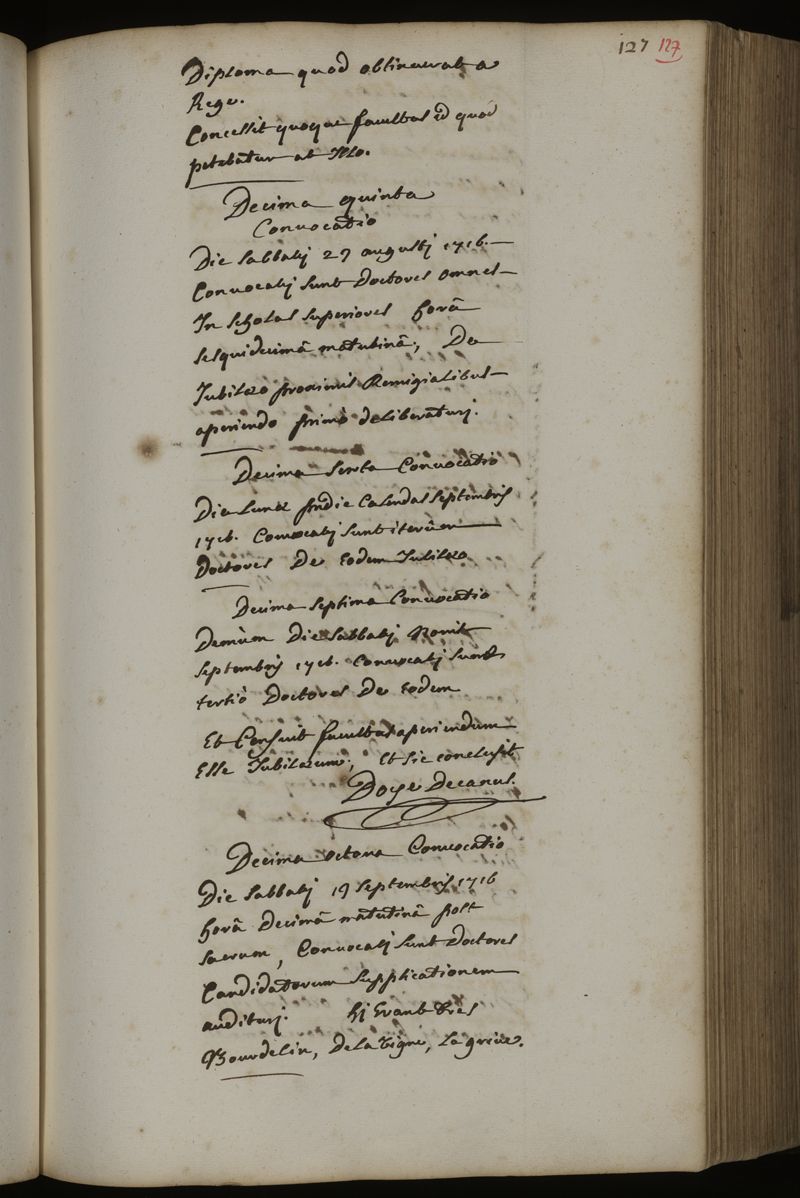 127 127
Diploma quod obtinuerat a
Rege.
Concessit quoque facultas id quod
petebatur ab Illo.
Decima quinta
Convocatio
Die Sabbatj 29 augustj 1716.
Convocatj sunt Doctores omnes
In scholas superiores horâ
sesquidecimâ matutinâ, De
Jubilæo proximis Remigialibus
aperiendo primò deliberaturj.
Decima Sexta Convocatio
Die Lunæ pridie Calendas Septembris
1716. Convocatj sunt iterùm
Doctores De eodem Jubilæo
Decima Septima Convocatio
Demùm Die Sabbatj Nonis
Septembris 1716. Convocatj sunt
tertiò Doctores De eodem
Et Censuit facultas aperiendum
Esse Jubilæum, Et sic conclusit
Doye Decanus.
Decima octava Convocatio
Die Sabbatj 19 Septembris 1716
horâ Decimâ matutinâ post
sacrum, Convocatj sunt Doctores
Candidatorum Supplicationem
auditurj. hj Erant tres
Bourdelin, De la Vigne, La grive.